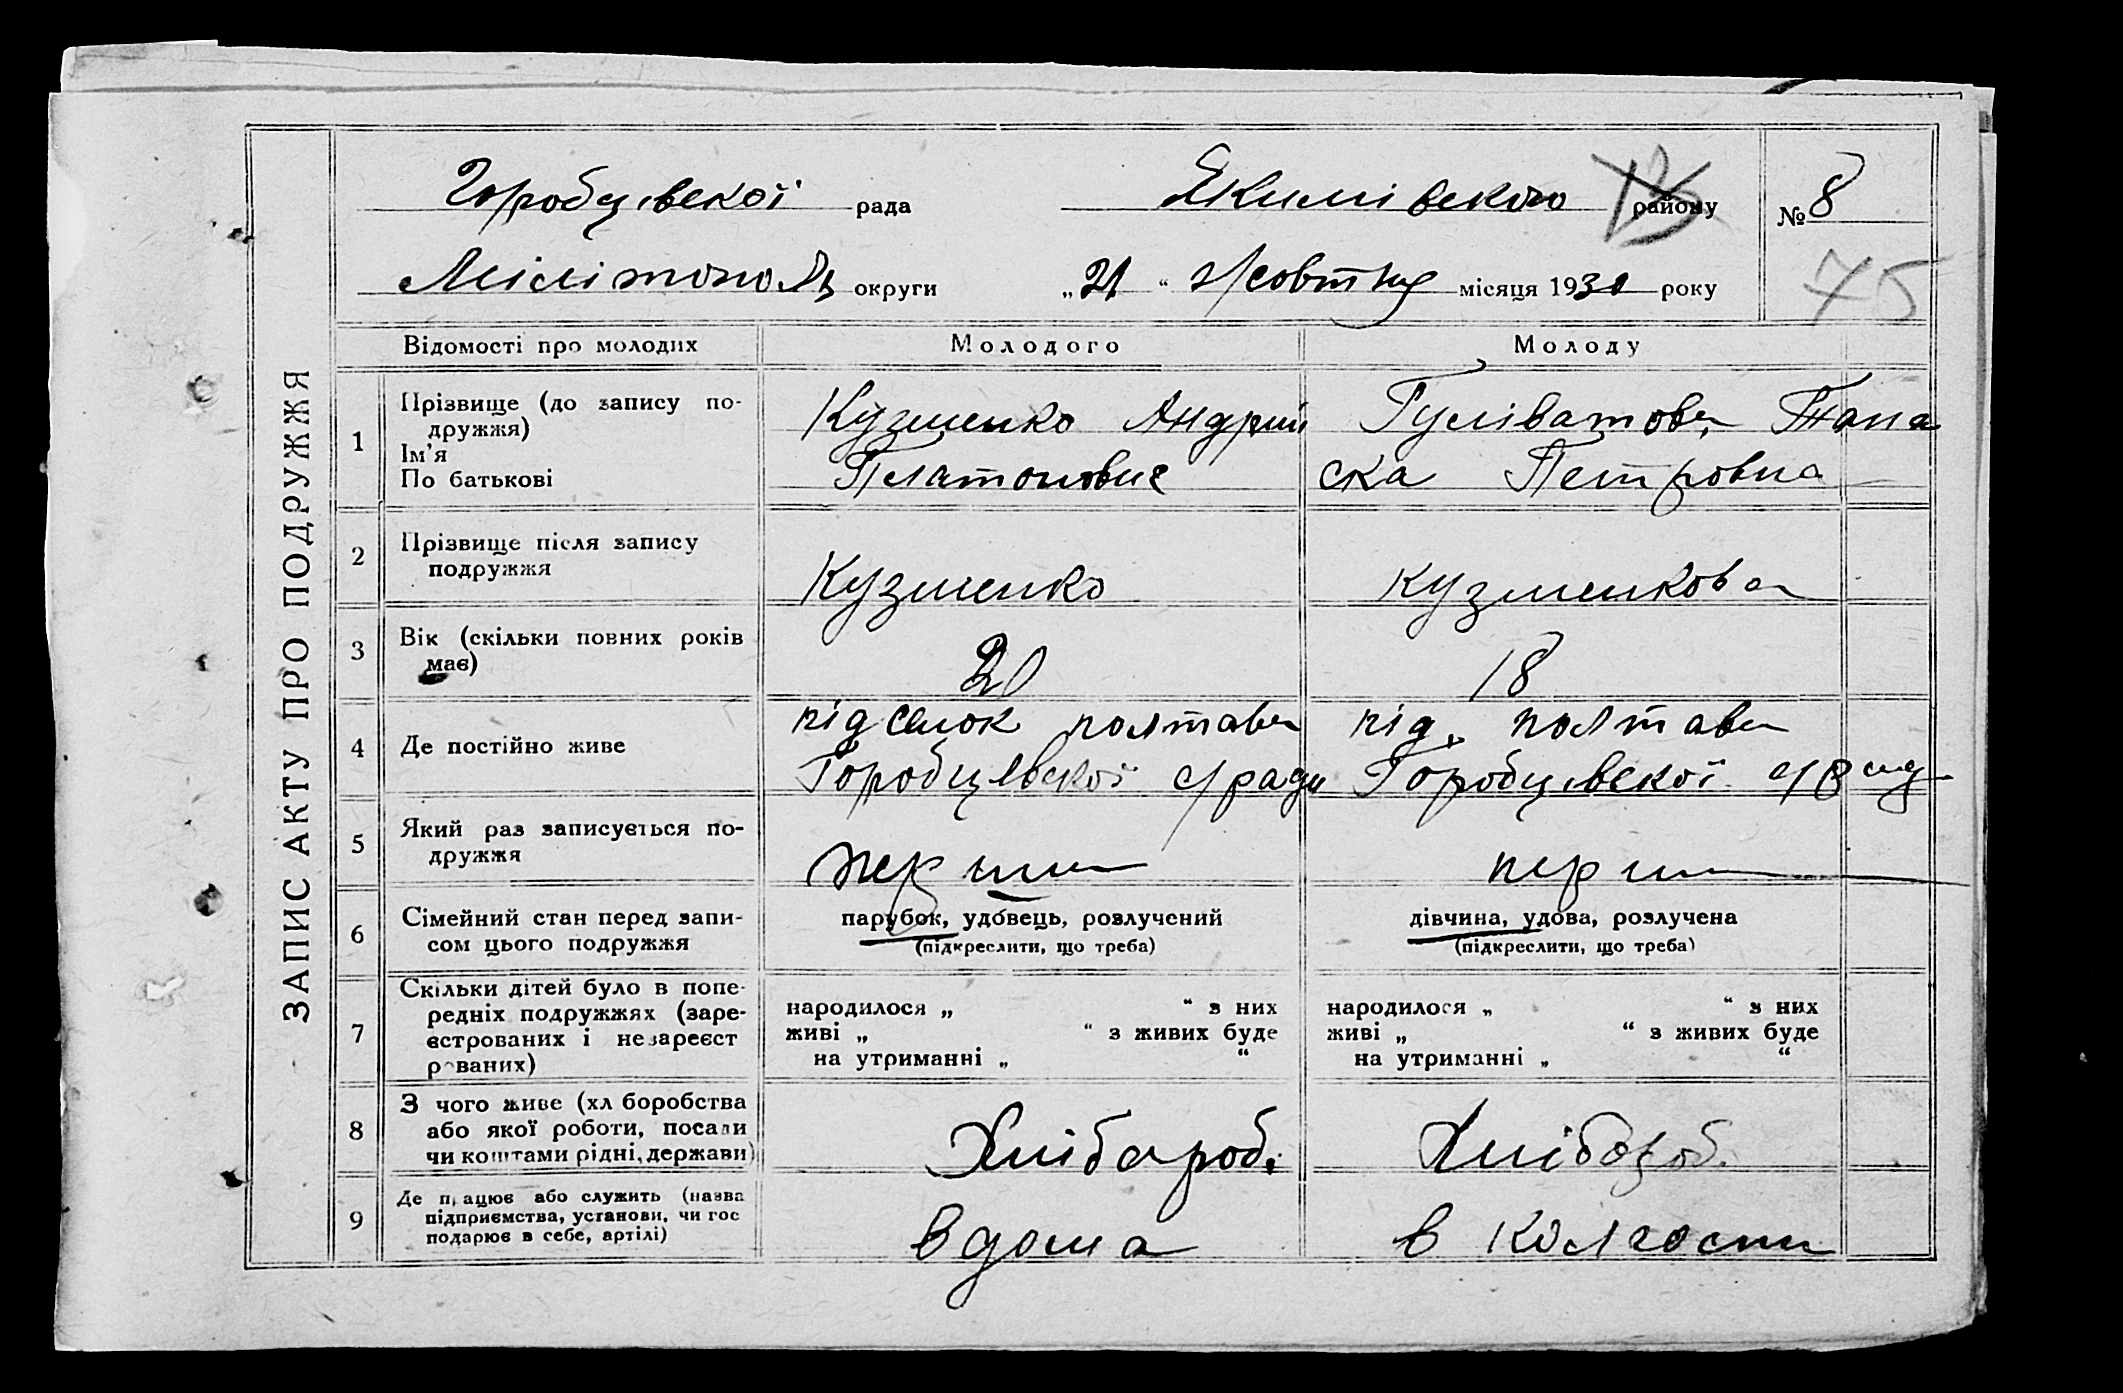 ЗАПИС АКТУ ПРО ПОДРУЖЖЯ
Горобцівскої рада Якимівского району № 8
Мілітополь округи „21“ Жовтня місяця 1930 року 75
Відомості про молодих Молодого Молоду
1 Прізвище (до запису по-
дружжя)
Ім'я
По батькові
Кузменко Андрій
Платонович
Гуліватова Тана
ска Петровна
2 Прізвище після запису
подружжя
Кузменко Кузменкова
3 Вік (скільки повних років
має)
20 18
4 Де постійно живе
підселок полтава
Горобцівскої с/ради
під. полтава
Горобцівскої с/рад
5 Який раз записується по-
дружжя
перши перши
6 Сімейний стан перед запи-
сом цього подружжя
парубок, удовець, розлучений
(підкреслити, що треба)
дівчина, удова, розлучена
(підкреслити, що треба)
7 Скільки дітей було в попе-
редніх подружжях (заре-
єстрованих і незареєст
рованих)
народилося „ “ з них
живі „ “ з живих буде
на утриманні „ “
народилося „ “ з них
живі „ “ з живих буде
на утриманні „ “
8 З чого живе (хлборобства
або якої роботи, посади
чи коштами рідні, держави)
Хлібороб. Хлібороб.
9 Де працює або служить (назва
підприємства, установи, чи гос
подарює в себе, артілі)
вдома в колгоспи